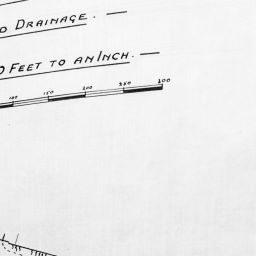 DRAINAGE. —
FEET TO AN INCH. —
100 150 200 250 300